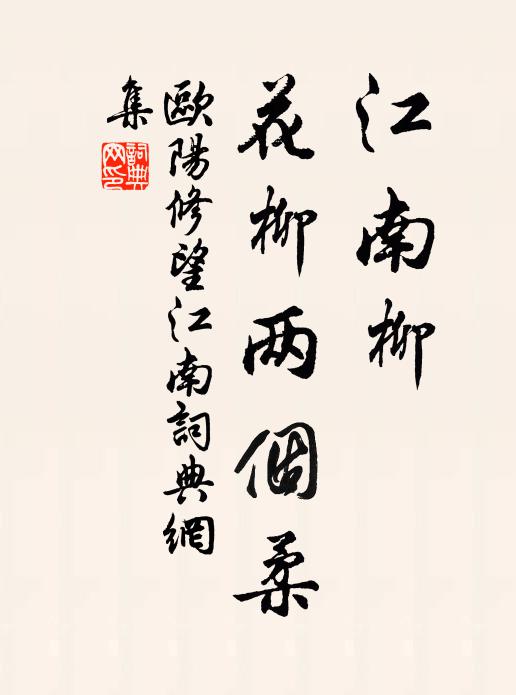 江南柳
花柳两個柔
歐陽修望江南詞典網
集
詞典
网印